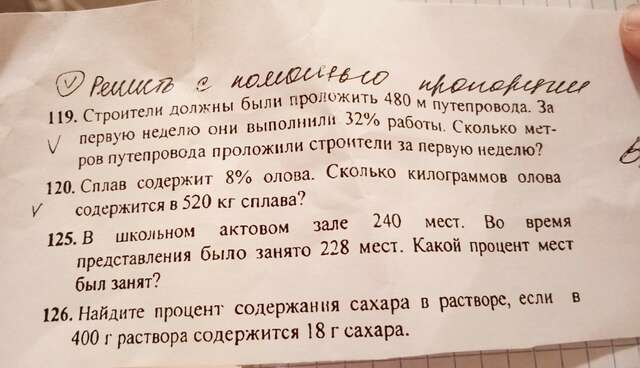 Решить с помощью пропорции
119. Строители должны были проложить 480 м путепровода. За
первую неделю они выполнили 32% работы. Сколько мет-
ров путепровода проложили строители за первую неделю?
120. Сплав содержит 8% олова. Сколько килограммов олова
содержится в 520 кг сплава?
125. В школьном актовом зале 240 мест. Во время
представления было занято 228 мест. Какой процент мест
был занят?
126. Найдите процент содержания сахара в растворе, если в
400 г раствора содержится 18 г сахара.